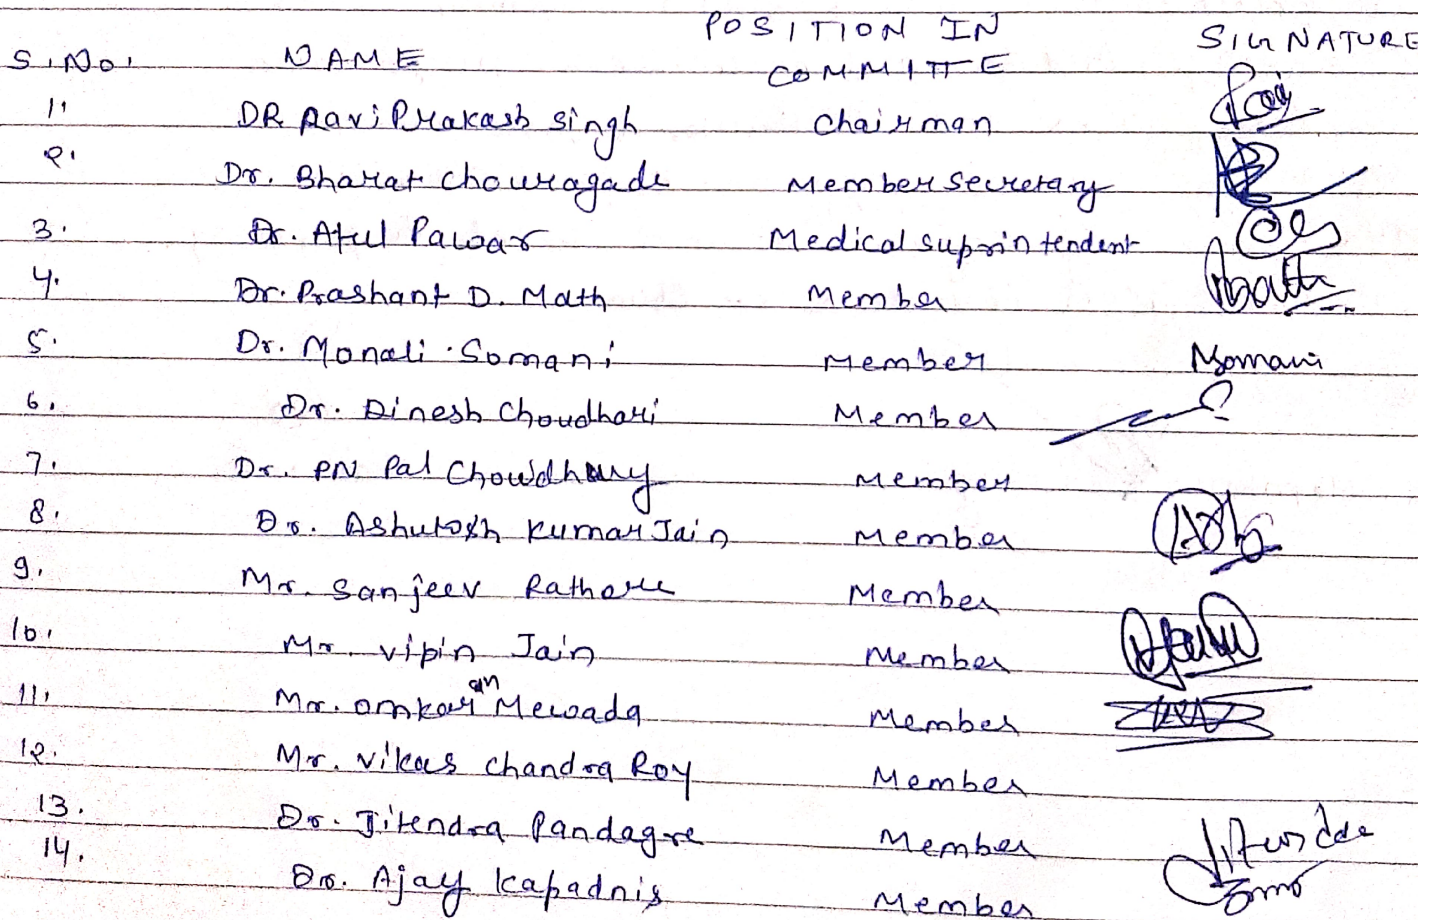 S.No. NAME POSITION IN COMMITTE SIGNATURE
1. DR Ravi Prakash Singh Chairman
2. Dr. Bharat Chouragade Member Secretary
3. Dr. Atul Pawar Medical suprintendent
4. Dr. Prashant D. Math Member
5. Dr. Monali Somani Member Msomani
6. Dr. Dinesh Choudhari Member
7. Dr. PN Pal Chowdhury Member
8. Dr. Ashutosh Kumar Jain Member
9. Mr. Sanjeev Rathore Member
10. Mr. vipin Jain Member
11. Mr. Omkar an Mewada Member
12. Mr. Vikas Chandra Roy Member
13. Dr. Jitendra Pandagre Member
14. Dr. Ajay Kapadnis Member